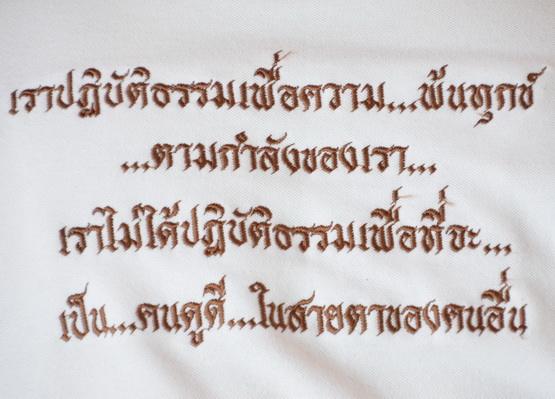 เราปฏิบัติธรรมเพื่อความ...พ้นทุกข์
...ตามกำลังของเรา...
เราไม่ได้ปฏิบัติธรรมเพื่อที่จะ...
เป็น...คนดูดี...ในสายตาของคนอื่น